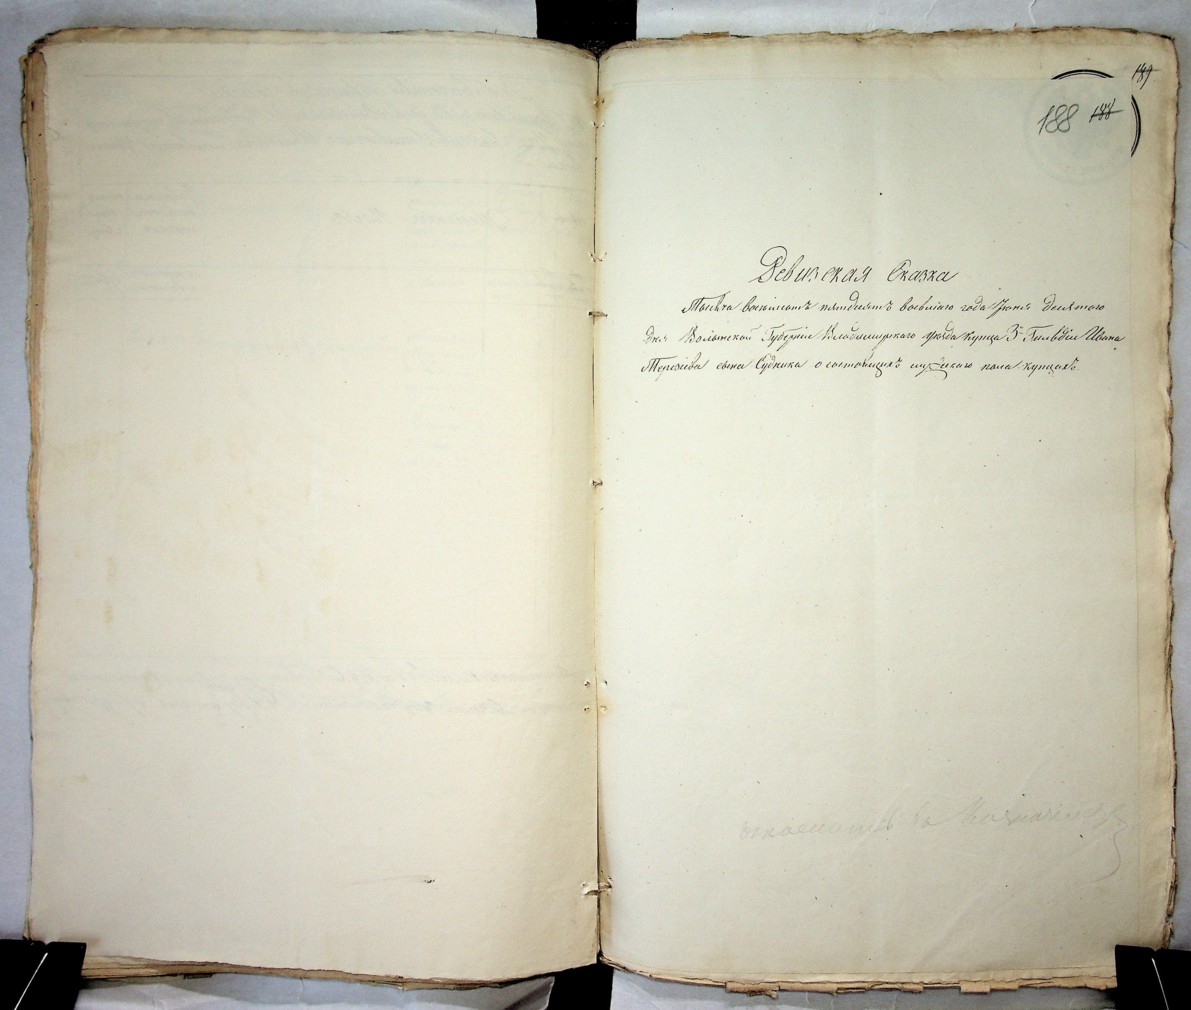 189
188 188
Ревизская Сказка
Тысяча восемьсотъ пятдесятъ восьмаго года Іюня десятого
дня Волынской Губерніи Владимирскаго уѣзда купца 3й Гильдіи Ивана
сына Судника о состоящихъ мужскаго пола купцахъ